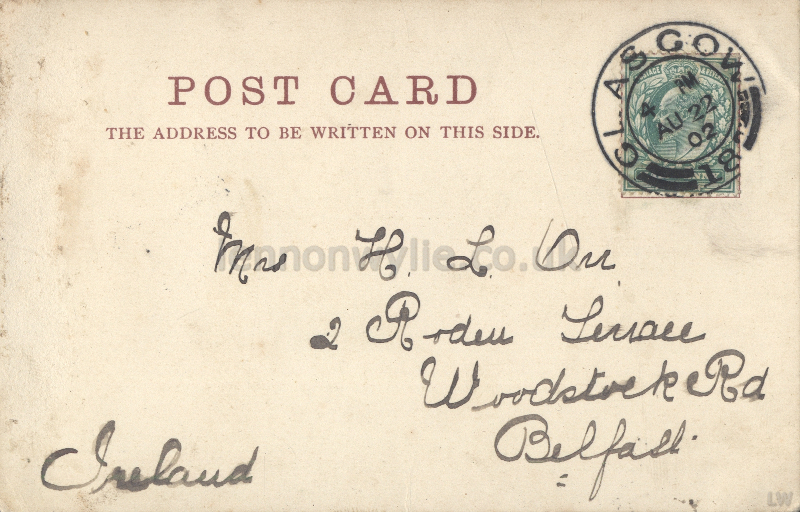 POST CARD
THE ADDRESS TO BE WRITTEN ON THIS SIDE.
GLASGOW
4
AU 22
02
18
POSTAGE
Mrs H. L. Orr
lennonwylie.co.uk
2 Roden Terrace
Woodstock Rd
Belfast
Ireland
LW